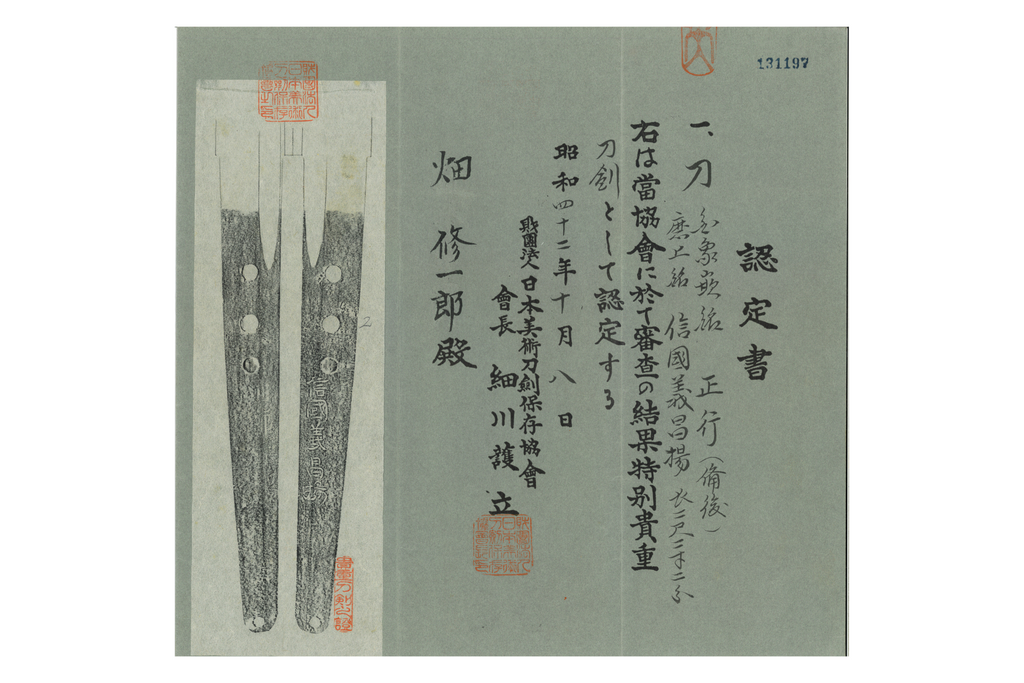 131197
認定書
一、刀 金象嵌銘 正行(備後)
磨上銘 信國義昌揚 長二尺二寸二分
右は當協會に於て審査の結果特別貴重
刀劍として認定する
昭和四十二年十月八日
財團法人日本美術刀劍保存協會
會長 細川護立
畑修一郎殿
信國義昌
2